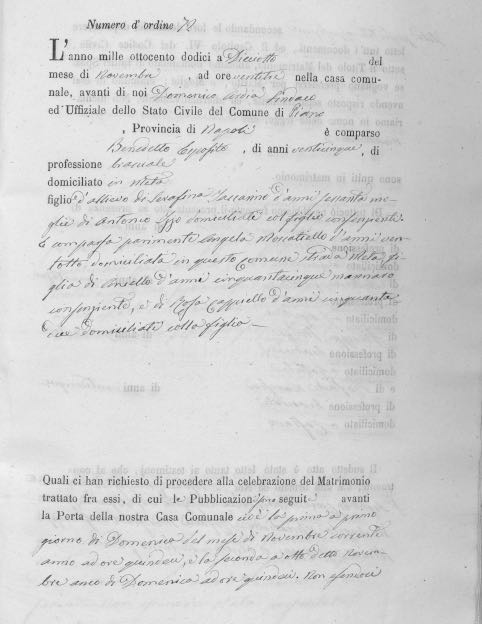 Numero d'ordine 72
L'anno mille ottocento dodici a Dieciotto del
mese di Novembre, ad ore ventitre nella casa comu-
nale, avanti di noi Domenico Sindaco
ed Uffiziale dello Stato Civile del Comune di Piano
, Provincia di Napoli è comparso
Benedetto Esposito, di anni venticinque, di
professione
domiciliato in Meta
figlio d'allievo di Serafina d'anni sessanta mo-
glie di Antonio Izzo domiciliate col figlio consenziente.
È comparsa parimente Angela d'anni ven-
totto domiciliata in questo comune Meta fi-
glia di Aniello d'anni cinquantacinque marinaro
consenziente, e di Rosa d'anni cinquanta
due domiciliate colla figlia
Quali ci han richiesto di procedere alla celebrazione del Matrimonio
trattato fra essi, di cui le Pubblicazion seguite avanti
la Porta della nostra Casa Comunale cioè la prima a primo
giorno di Domenica del mese di Novembre corrente
anno ad ore quindici, e la seconda a otto detto Novem-
bre anco di Domenica ad ore quindici. Non essendoci